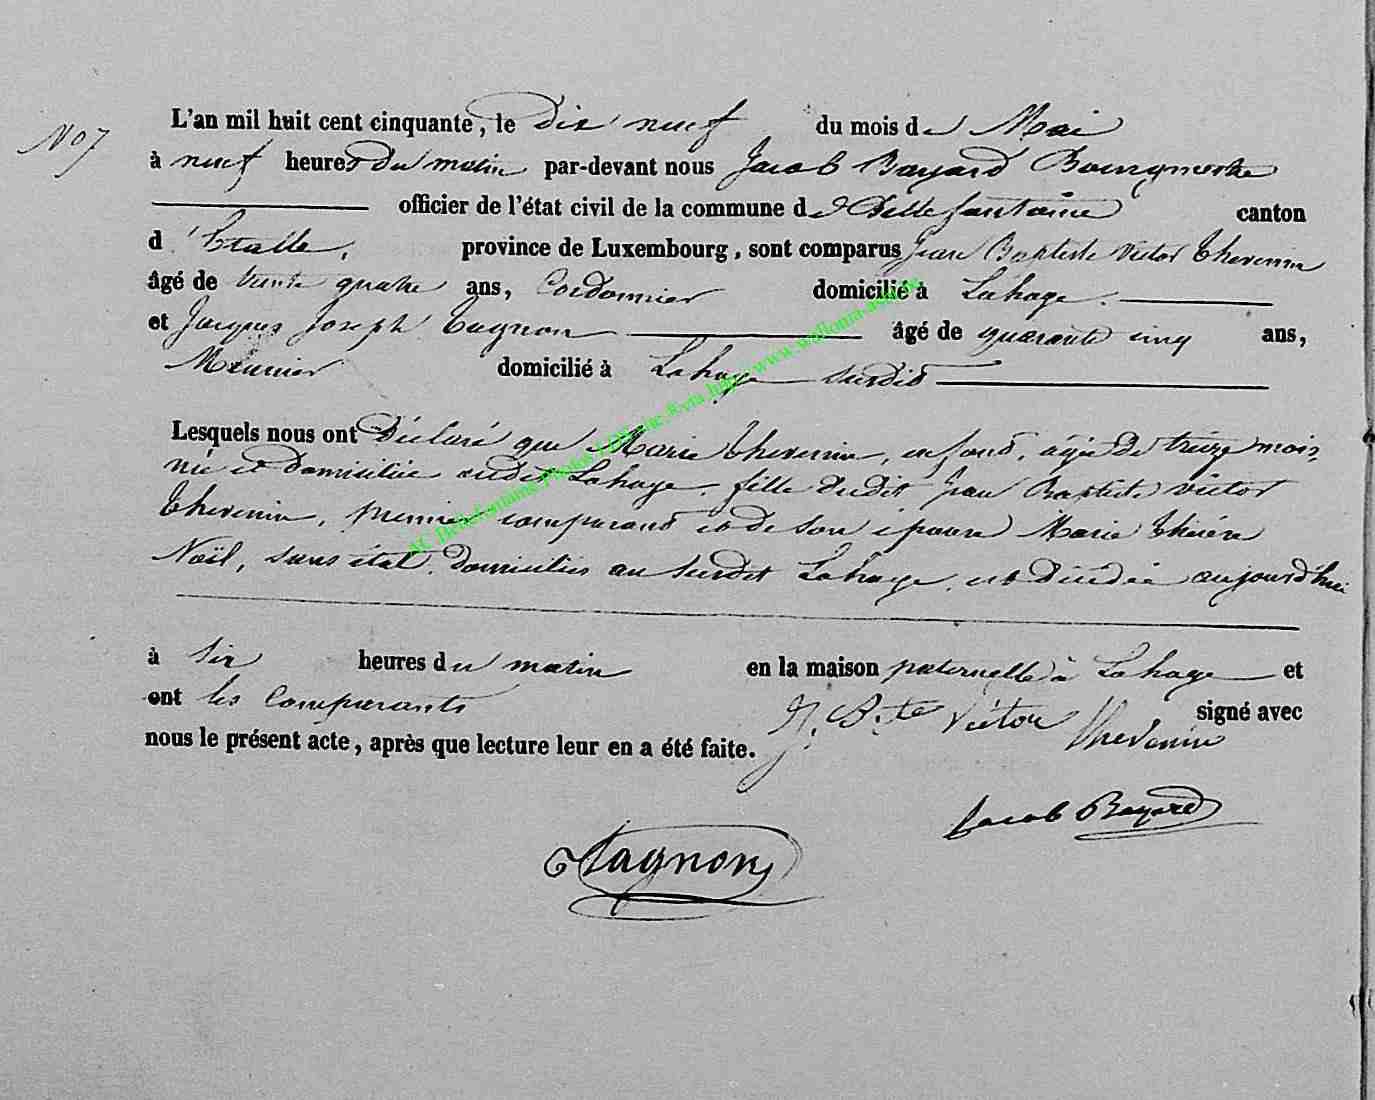 N° 7
L'an mil huit cent cinquante, le Dix neuf du mois de Mai
à neuf heures du matin par-devant nous Jacob Bayard Bourgmestre
officier de l'état civil de la commune de Bellefontaine canton
d'Etalle, province de Luxembourg, sont comparus Jean Baptiste Victor Thevenin
âgé de trente quatre ans, Cordonnier domicilié à Lahage.
et Jacques Joseph Tagnon âgé de quarante cinq ans,
Meunier domicilié à Lahage susdit
Lesquels nous ont Déclaré que Marie Thevenin, enfant, agée de treize mois,
née et domiciliée audit Lahage, fille dudit Jean Baptiste Victor
Thevenin, premier comparant et de son épouse Marie Thérèse
Noël, sans état, domiciliés au susdit Lahage, est décédée aujourd'hui
à six heures du matin en la maison paternelle à Lahage et
ont les comparants signé avec
nous le présent acte, après que lecture leur en a été faite.
J. Bte Victor Thevenin
Jacob Bayard
Tagnon